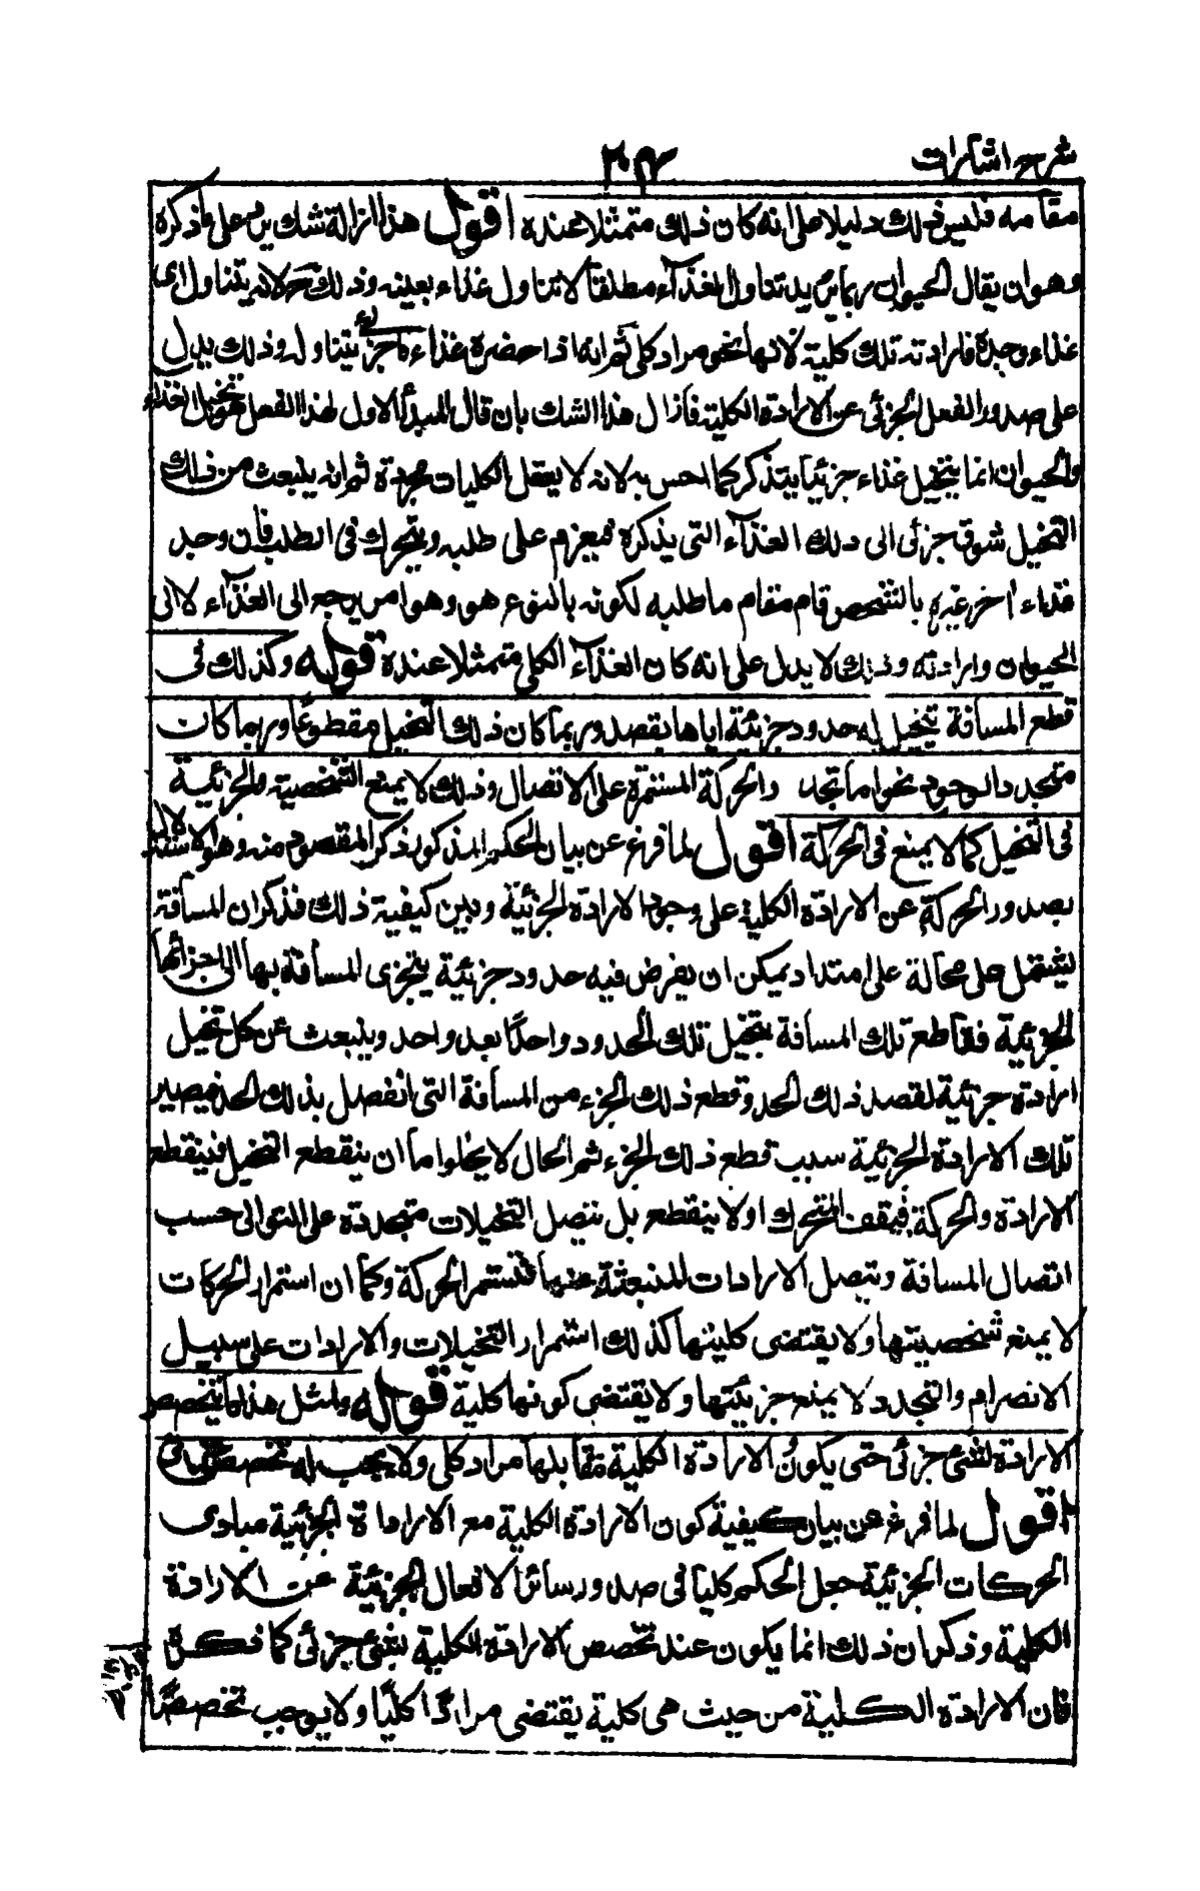 شرح اشارات
۲۰۴
مقامه فليس ذلك دليلا على انه كان ذلك متمثلا عنده اقول هذا ازالة شك يرد على ما ذكره
وهو ان يقال الحيوان ربما يريد تناول الغذآء مطلقا لا تناول غذاء بعينه وذلك لانه يتناول اى
غذاء وجده فارادته تلك كلية لانها نحو مراد كلى ثم انه اذا حضره غذاء ما جزئى يتناوله وذلك يدل
على صدور الفعل الجزئى عن الارادة الكلية فازال هذا الشك بان قال المبدأ الاول لهذا الفعل هو تخيل الغذاء
والحيوان انما يتخيل غذاء جزئيا يتذكر كما احس به لانه لا يعقل الكليات مجردة ثم انه ينبعث من ذلك
التخيل شوق جزئى الى ذلك الغذآء التى يذكره فيعزم على طلبه ويتحرك فى الطلب فان وجد
غذاء اخر غيره بالشخص قام مقام ما طلبه لكونه بالنوع هو وهو امر يرجع الى الغذآء لا الى
الحيوان وارادته وذلك لا يدل على انه كان الغذآء الكلى متمثلا عنده قوله وكذلك فى
قطع المسافة يتخيل له حدود جزئية اياها يقصد وربما كان ذلك التخيل مقطوعا وربما كان
متجدد الوجود نحوا ما تجدد والحركة المستمرة على الاتصال وذلك لا يمنع الشخصية والجزئية
فى التخيل كما لا يمنع فى الحركة اقول لما فرغ عن بيان الحكم المذكور ذكر المقصود منه وهو الاستدلال
بصدور الحركة عن الارادة الكلية على وجود الارادة الجزئية وبين كيفية ذلك فذكر ان المسافة
يشتمل لا محالة على امتداد يمكن ان يفرض فيه حدود جزئية يتجزى المسافة بها الى اجزائها
الجزئية فقاطع تلك المسافة يتخيل تلك الحدود واحدًا بعد واحد وينبعث عن كل تخيل
ارادة جزئية لقصد ذلك الحد وقطع ذلك الجزء من المسافة التى انفصل بذلك الحد فيصير
تلك الارادة الجزئية سبب قطع ذلك الجزء ثم الحال لا يخلوا ما ان ينقطع التخيل فينقطع
الارادة والحركة فيقف المتحرك او لا ينقطع بل يتصل التخيلات متجددة على التوالى حسب
اتصال المسافة ويتصل الارادات المنبعثة عنها فتستمر الحركة وكما ان استمرار الحركات
لا يمنع شخصيتها ولا يقتضى كليتها كذلك استمرار التخيلات والارادات على سبيل
الانصرام والتجدد لا يمنع جزئيتها ولا يقتضى كونها كلية قوله ولمثل هذا ما يتخصص
الارادة لشئ جزئى حتى يكون الارادة الكلية مقابلها مراد كلى ولا يجب له تخصص جزئى
اقول لما فرغ عن بيان كيفية كون الارادة الكلية مع الارادة الجزئية مبادى
الحركات الجزئية جعل الحكم كليا فى صدور سائر الافعال الجزئية عن الارادة
الكلية وذكر ان ذلك انما يكون عند تخصص الارادة الكلية بشئ جزئى كما ذكره
فان الارادة الكلية من حيث هى كلية يقتضى مرادًا كليًا ولا يوجب تخصصًا